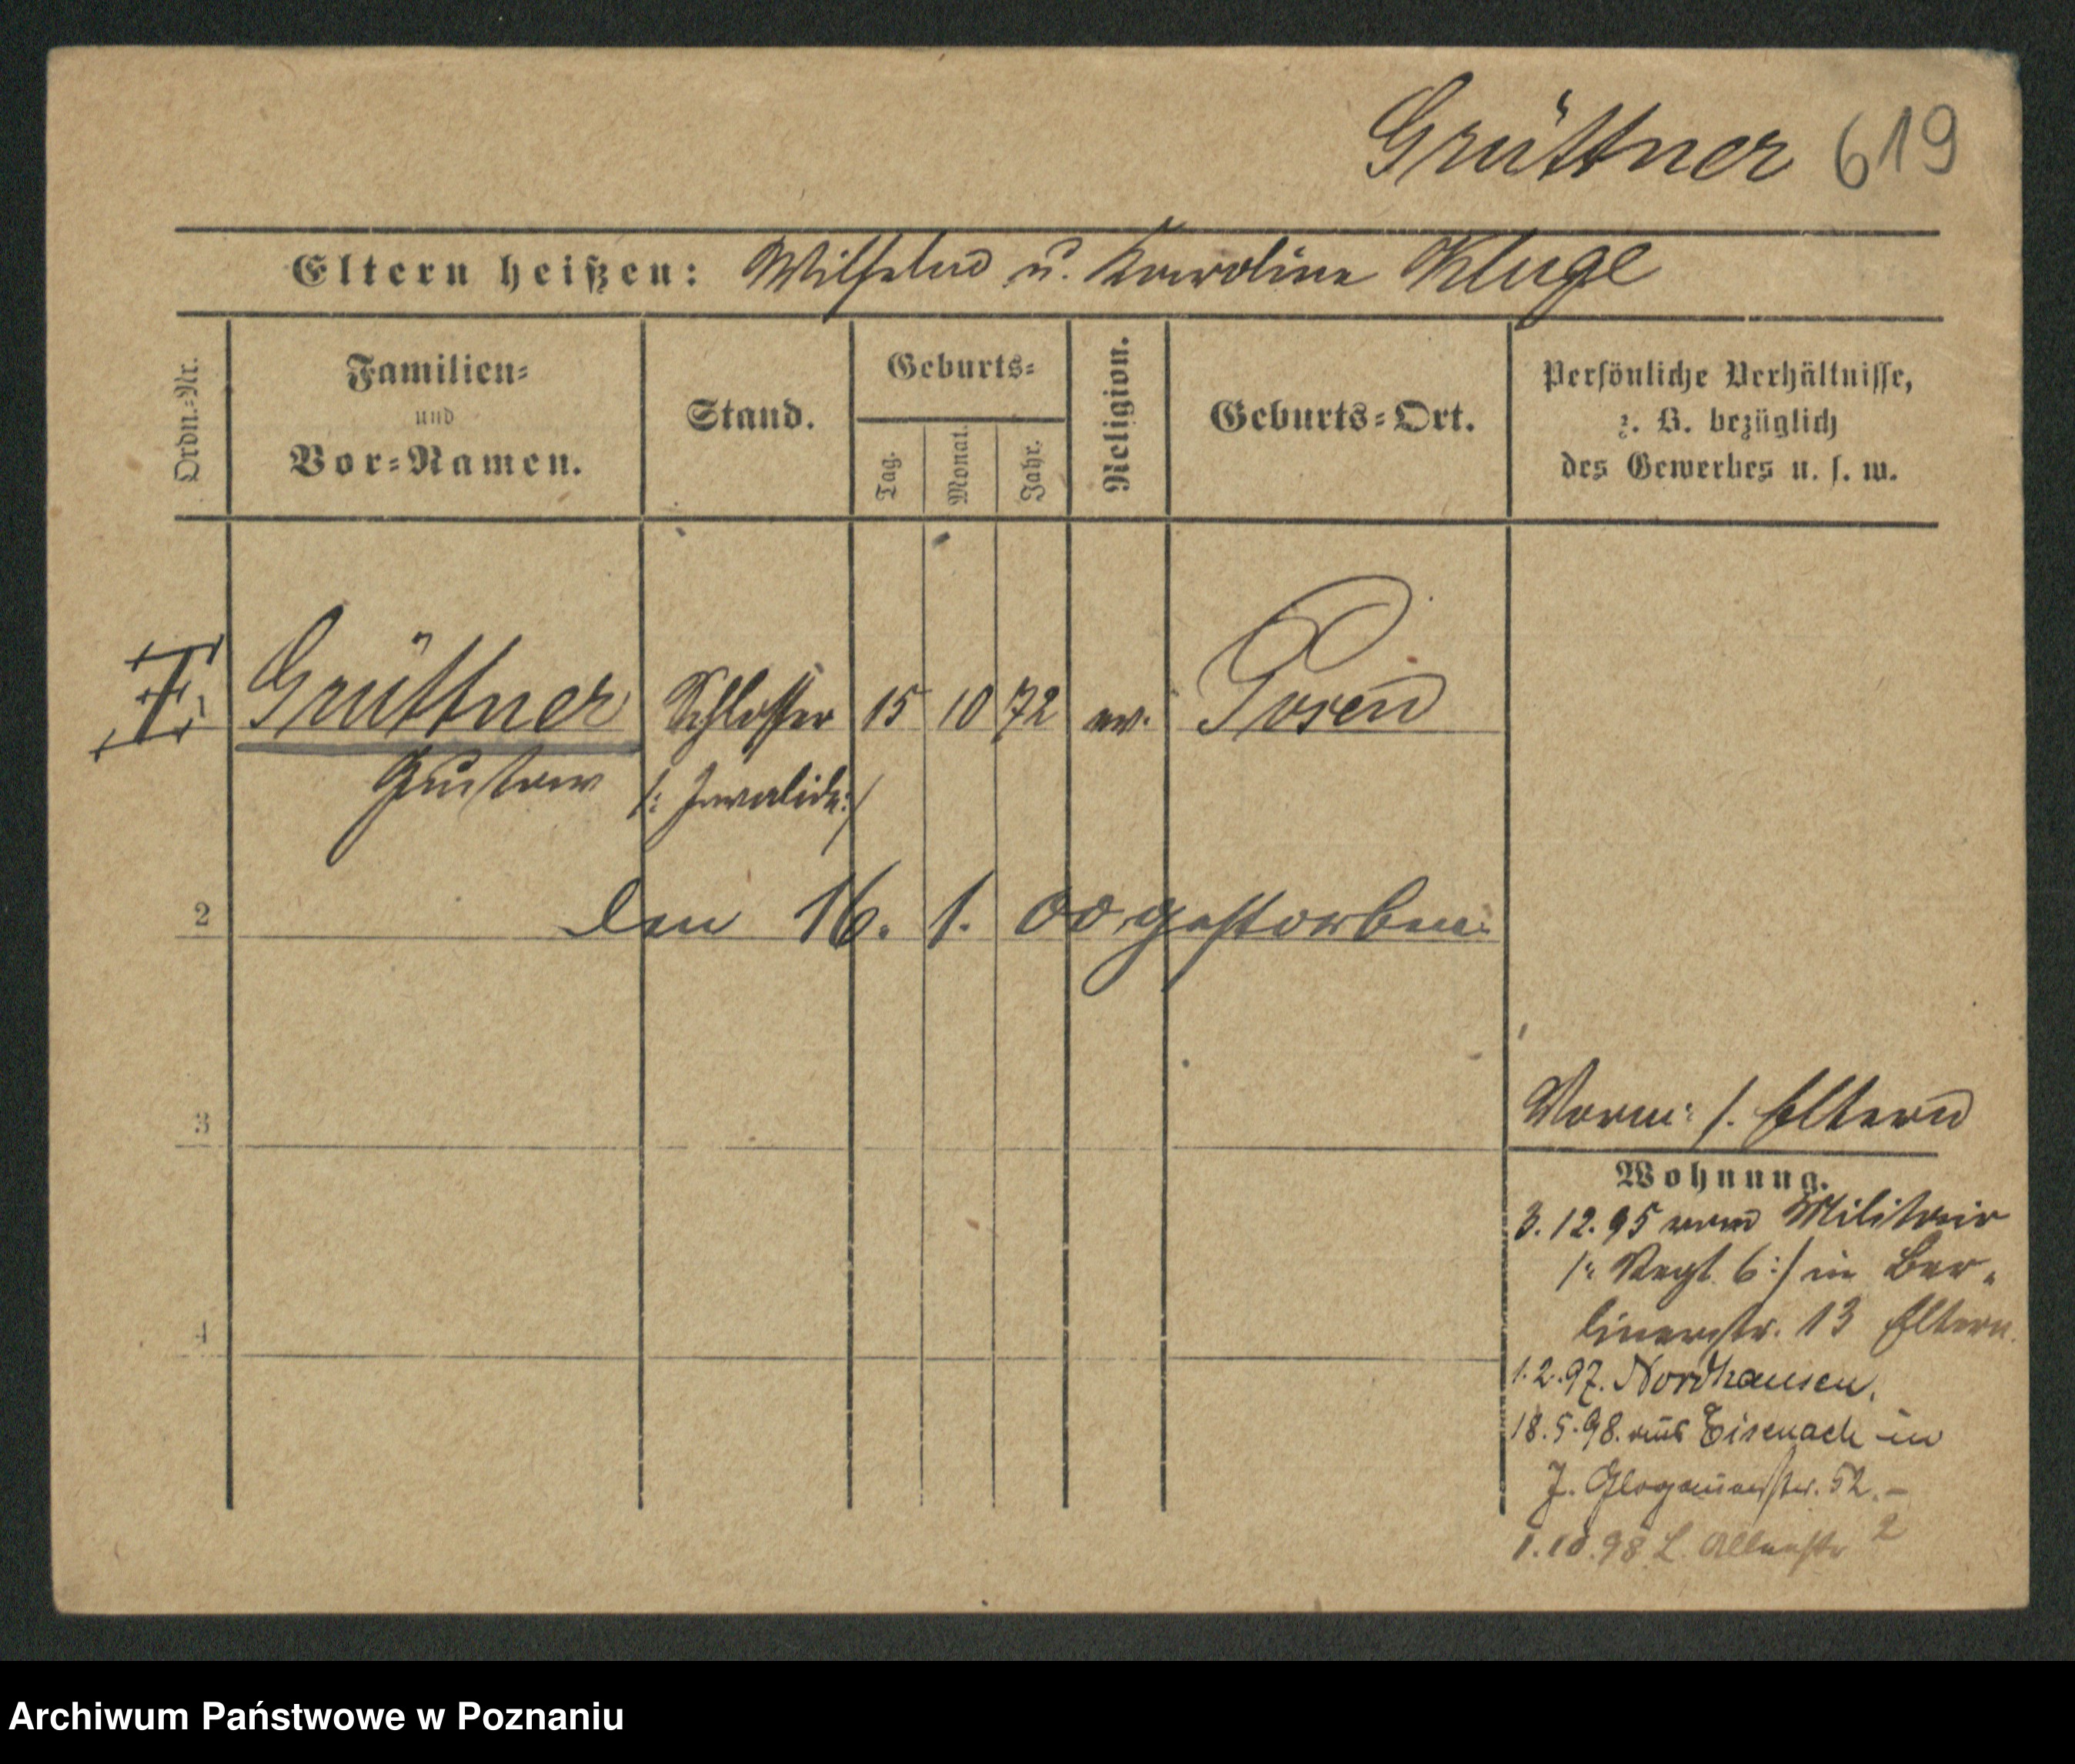 Grüttner 619
Eltern heißen: Wilhelm u. Karoline Kluge
Ordn.-Nr.
Familien-
und
Vor-Namen.
Stand.
Geburts-
Tag.
Monat.
Jahr.
Religion.
Geburts-Ort.
Persönliche Verhältnisse,
z. B. bezüglich
des Gewerbes u. s. w.
Grüttner Schlosser 15 10 72 ev. Posen
Gustav /: Invalide :/
2 den 16. 1. 00 gestorben.
3
Vorm: /. Eltern
Wohnung.
3. 12. 95 vom Militair
/: Regt. 6 :/ in Ber-
linerstr. 13 Eltern.
4
1. 2. 97. Nordhausen.
18. 5. 98. aus Eisenach in
J. Glogauerstr. 52. –
1. 10. 98 L. 2
Archiwum Państwowe w Poznaniu